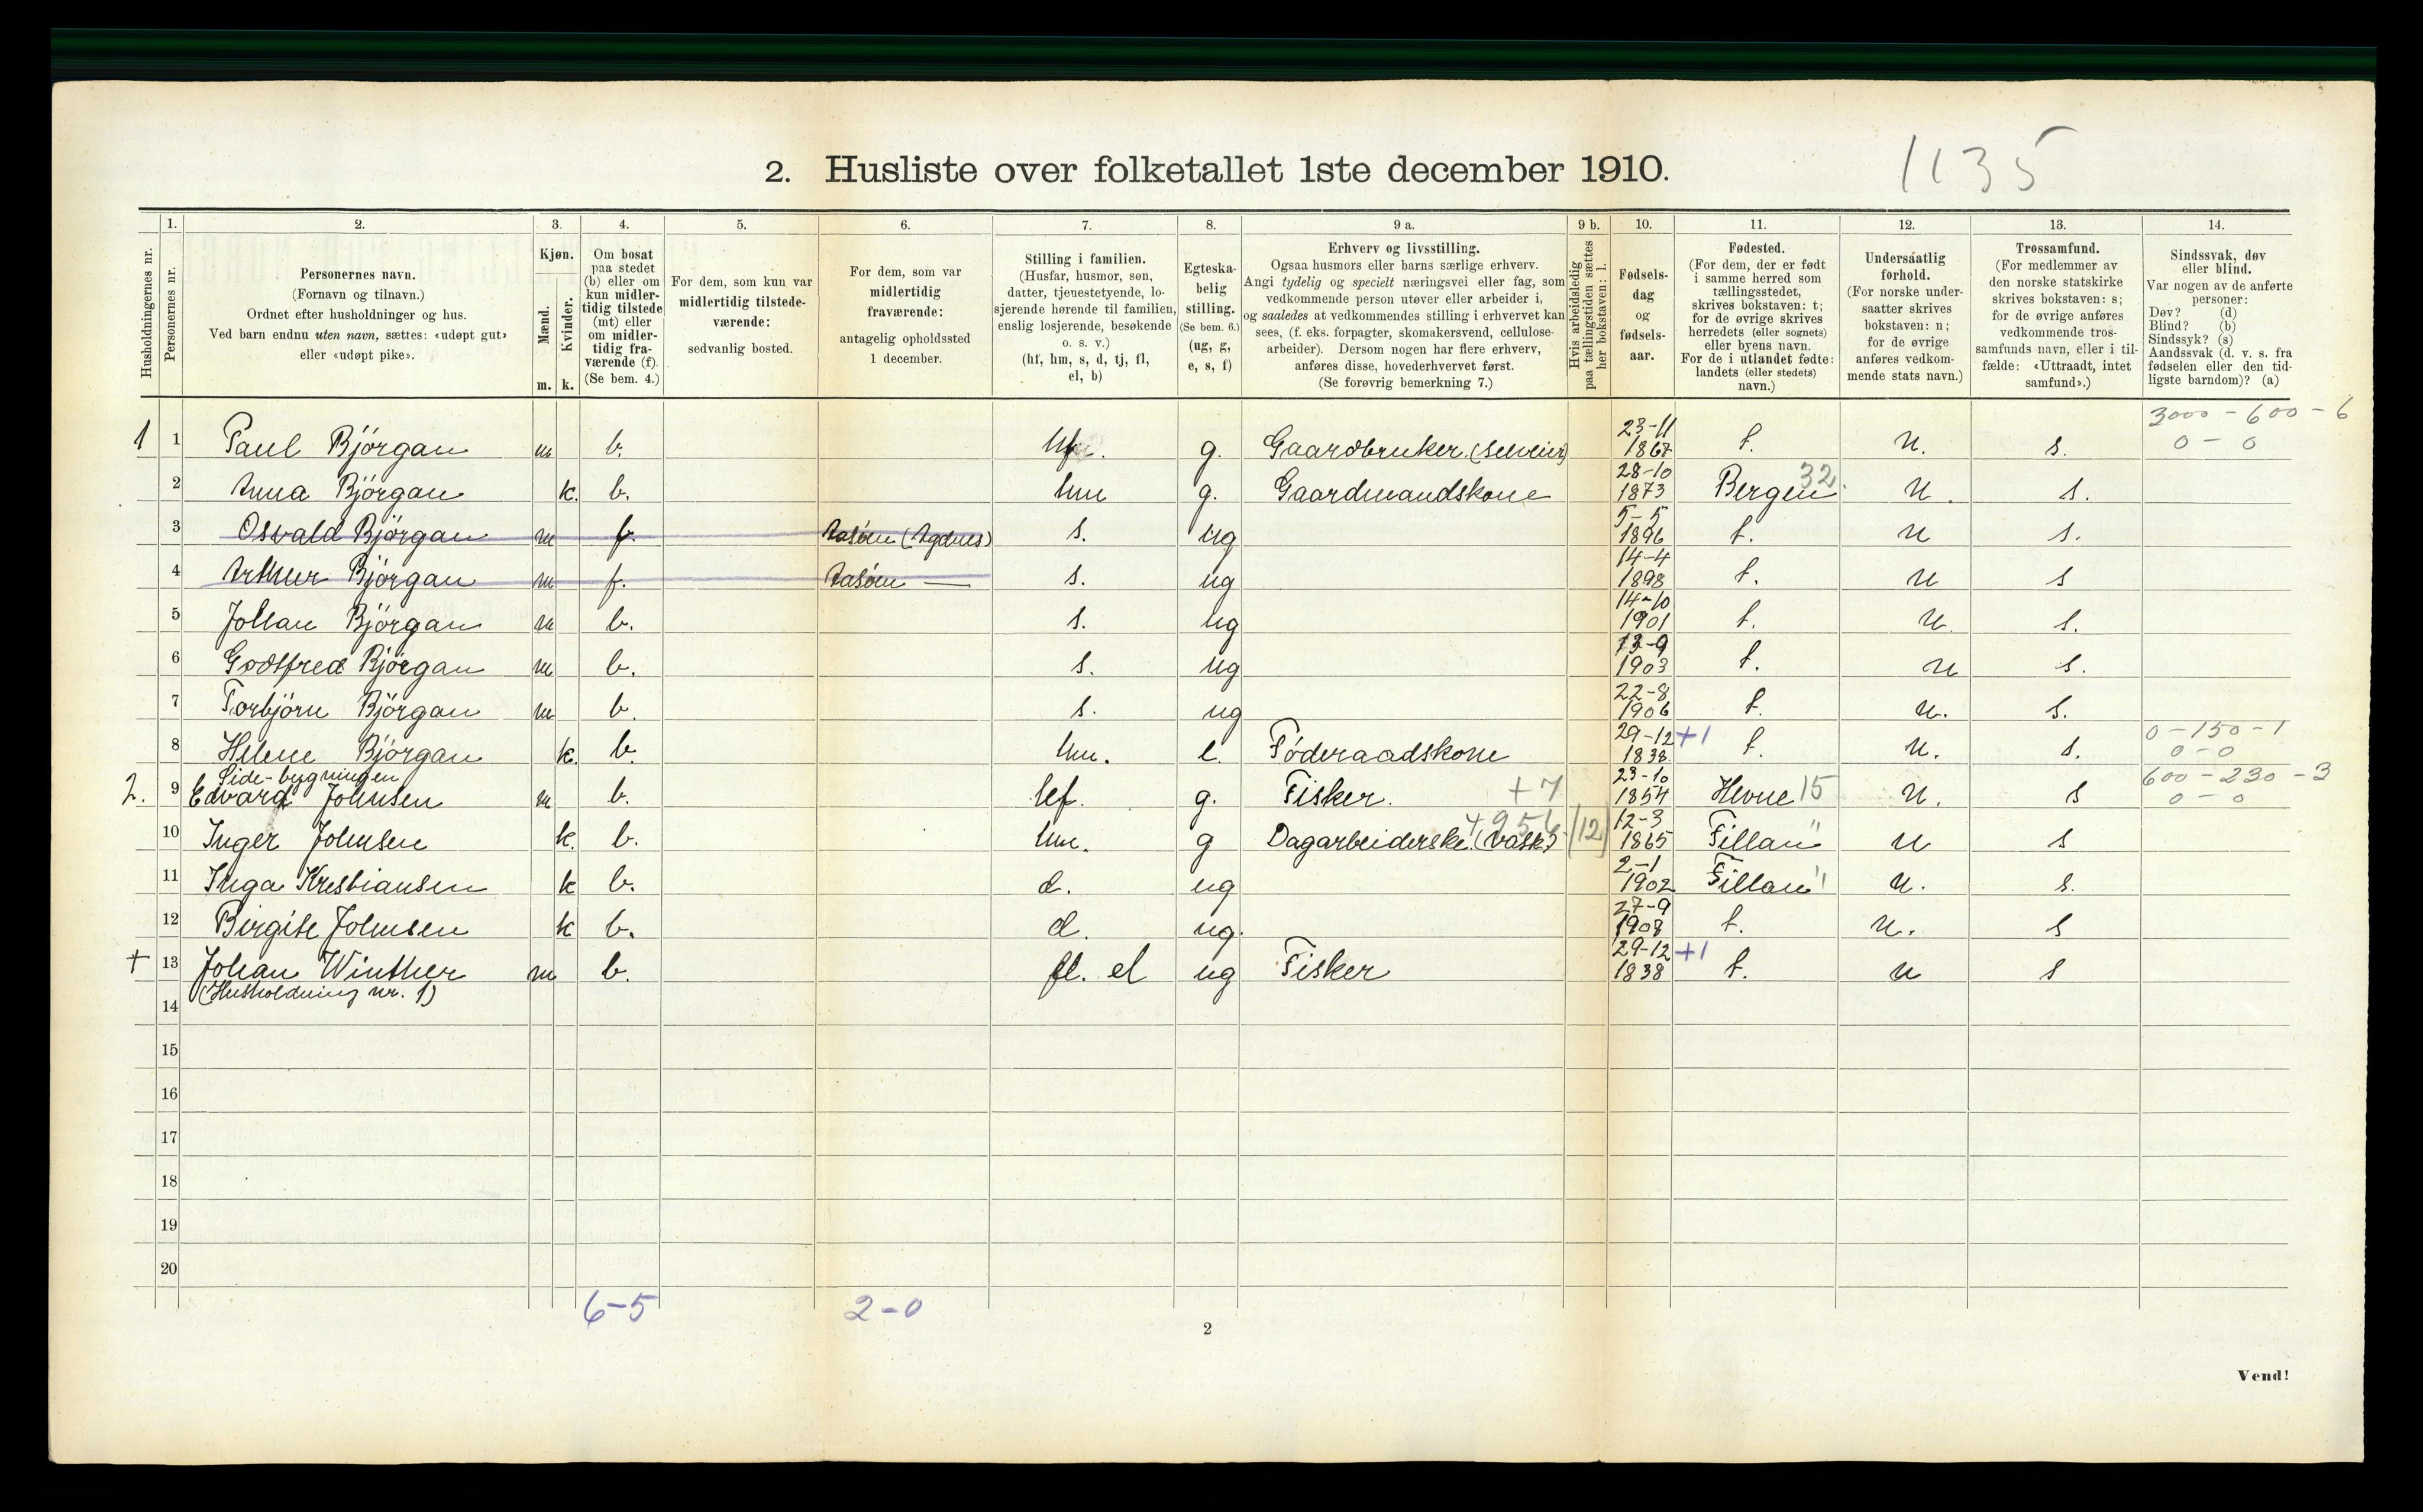 1135
2. Husliste over folketallet 1ste december 1910.
Husholdningernes nr.
1.
Personernes nr.
2.
Personernes navn.
(Fornavn og tilnavn.)
Ordnet efter husholdninger og hus.
Ved barn endnu uten navn, sættes: «udøpt gut»
eller «udøpt pike».
3.
Kjøn.
Mænd.
m.
Kvinder.
k.
4.
Om bosat
paa stedet
(b) eller om
kun midler-
tidig tilstede
(mt) eller
om midler-
tidig fra-
værende (f).
(Se bem. 4.)
5.
For dem, som kun var
midlertidig tilstede-
værende:
sedvanlig bosted.
6.
For dem, som var
midlertidig
fraværende:
antagelig opholdssted
1 december.
7.
Stilling i familien.
(Husfar, husmor, søn,
datter, tjenestetyende, lo-
sjerende hørende til familien,
enslig losjerende, besøkende
o. s. v.)
(hf, hm, s, d, tj, fl,
el, b)
8.
Egteska-
belig
stilling.
(Se bem. 6.)
(ug, g,
e, s, f)
9 a.
Erhverv og livsstilling.
Ogsaa husmors eller barns særlige erhverv.
Angi tydelig og specielt næringsvei eller fag, som
vedkommende person utøver eller arbeider i,
og saaledes at vedkommendes stilling i erhvervet kan
sees, (f. eks. forpagter, skomakersvend, cellulose-
arbeider). Dersom nogen har flere erhverv,
anføres disse, hovederhvervet først.
(Se forøvrig bemerkning 7.)
9 b.
Hvis arbeidsledig
paa tællingstiden sættes
her bokstaven: l.
10.
Fødsels-
dag
og
fødsels-
aar.
11.
Fødested.
(For dem, der er født
i samme herred som
tællingsstedet,
skrives bokstaven: t;
for de øvrige skrives
herredets (eller sognets)
eller byens navn.
For de i utlandet fødte:
landets (eller stedets)
navn.)
12.
Undersaatlig
forhold.
(For norske under-
saatter skrives
bokstaven: n;
for de øvrige
anføres vedkom-
mende stats navn.)
13.
Trossamfund.
(For medlemmer av
den norske statskirke
skrives bokstaven: s;
for de øvrige anføres
vedkommende tros-
samfunds navn, eller i til-
fælde: «Uttraadt, intet
samfund».)
14.
Sindssvak, døv
eller blind.
Var nogen av de anførte
personer:
Døv? (d)
Blind? (b)
Sindssyk? (s)
Aandssvak (d. v. s. fra
fødselen eller den tid-
ligste barndom)? (a)
3000 - 600 - 6
1 1 Paul Bjørgan m b. hf. g. Gaardbruker (selveier) 23-11 1867 t. n. s. 0 - 0
2 Anna Bjørgan k. b. hm g. Gaardmandskone 28-10 1873 Bergen 32 n. s.
3 Osvald Bjørgan m f. (Agdnes) s. ug 5-5 1896 t. n s.
4 Arthur Bjørgan m f. — s. ug 14-4 1898 t. n s
5 Johan Bjørgan m b. s. ug 14-10 1901 t. n. s.
6 Godtfred Bjørgan m b. s. ug 13-9 1903 t. n s.
7 Torbjørn Bjørgan m b. s. ug 22-8 1906 t. n. s.
0 - 150 - 1
8 Helene Bjørgan k. b. hm. e. Føderaadskone 29-12 1838 +1 t. n. s. 0 - 0
Side-bygningen
600 - 230 - 3
2. 9 Edvard Johnsen m b. hf. g. Fisker. +7 23-10 1854 Hevne 15 n. s 0 - 0
10 Inger Johnsen k. b. hm. g Dagarbeiderske (vask) 12 12-3 1865 Fillan " n s
11 Inga Kristiansen k b. d. ug 2-1 1902 Fillan " n. s.
12 Birgite Johnsen k b. d. ug. 27-9 1908 t. n. s
+ 13 Johan Winther m b. fl. el ug Fisker 29-12 1838 +1 t. n s
(Husholdning nr. 1)
14
15
16
17
18
19
20
6-5 2-0
2
Vend!